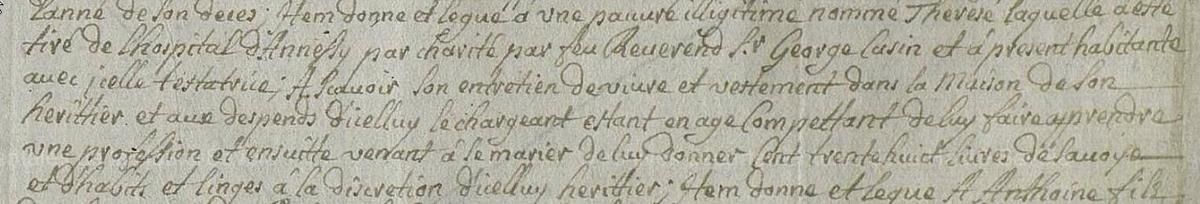 Lanné de son deces; Item donne et legue á vne pauure illigitime nomme Therese laquelle a esté
tiré de lhospital d'Annessy par charité par feu Reuerend S.r George Cusin et á present habitante
auec jcelle testatrice; A Scauoir son entretien de viure et vestement dans la Maison de son
herittier et aux despends d'icelluy le chargeant estant en age Compettant de luy faire apprendre
vne profession et ensuitte venant á se marier de luy donner Cent trente huict liures de Sauoye
et d'habits et linges á la discretion d'icelluy herittier; Item donne et legue A Anthoine filz